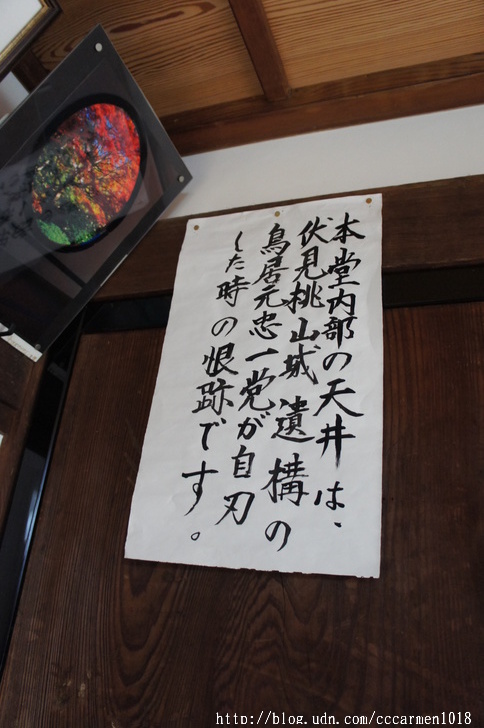 本堂内部の天井は、
伏見桃山城遺構の
鳥居元忠一党が自刃
した時の恨跡です。
http://blog.udn.com/cccarmen1018